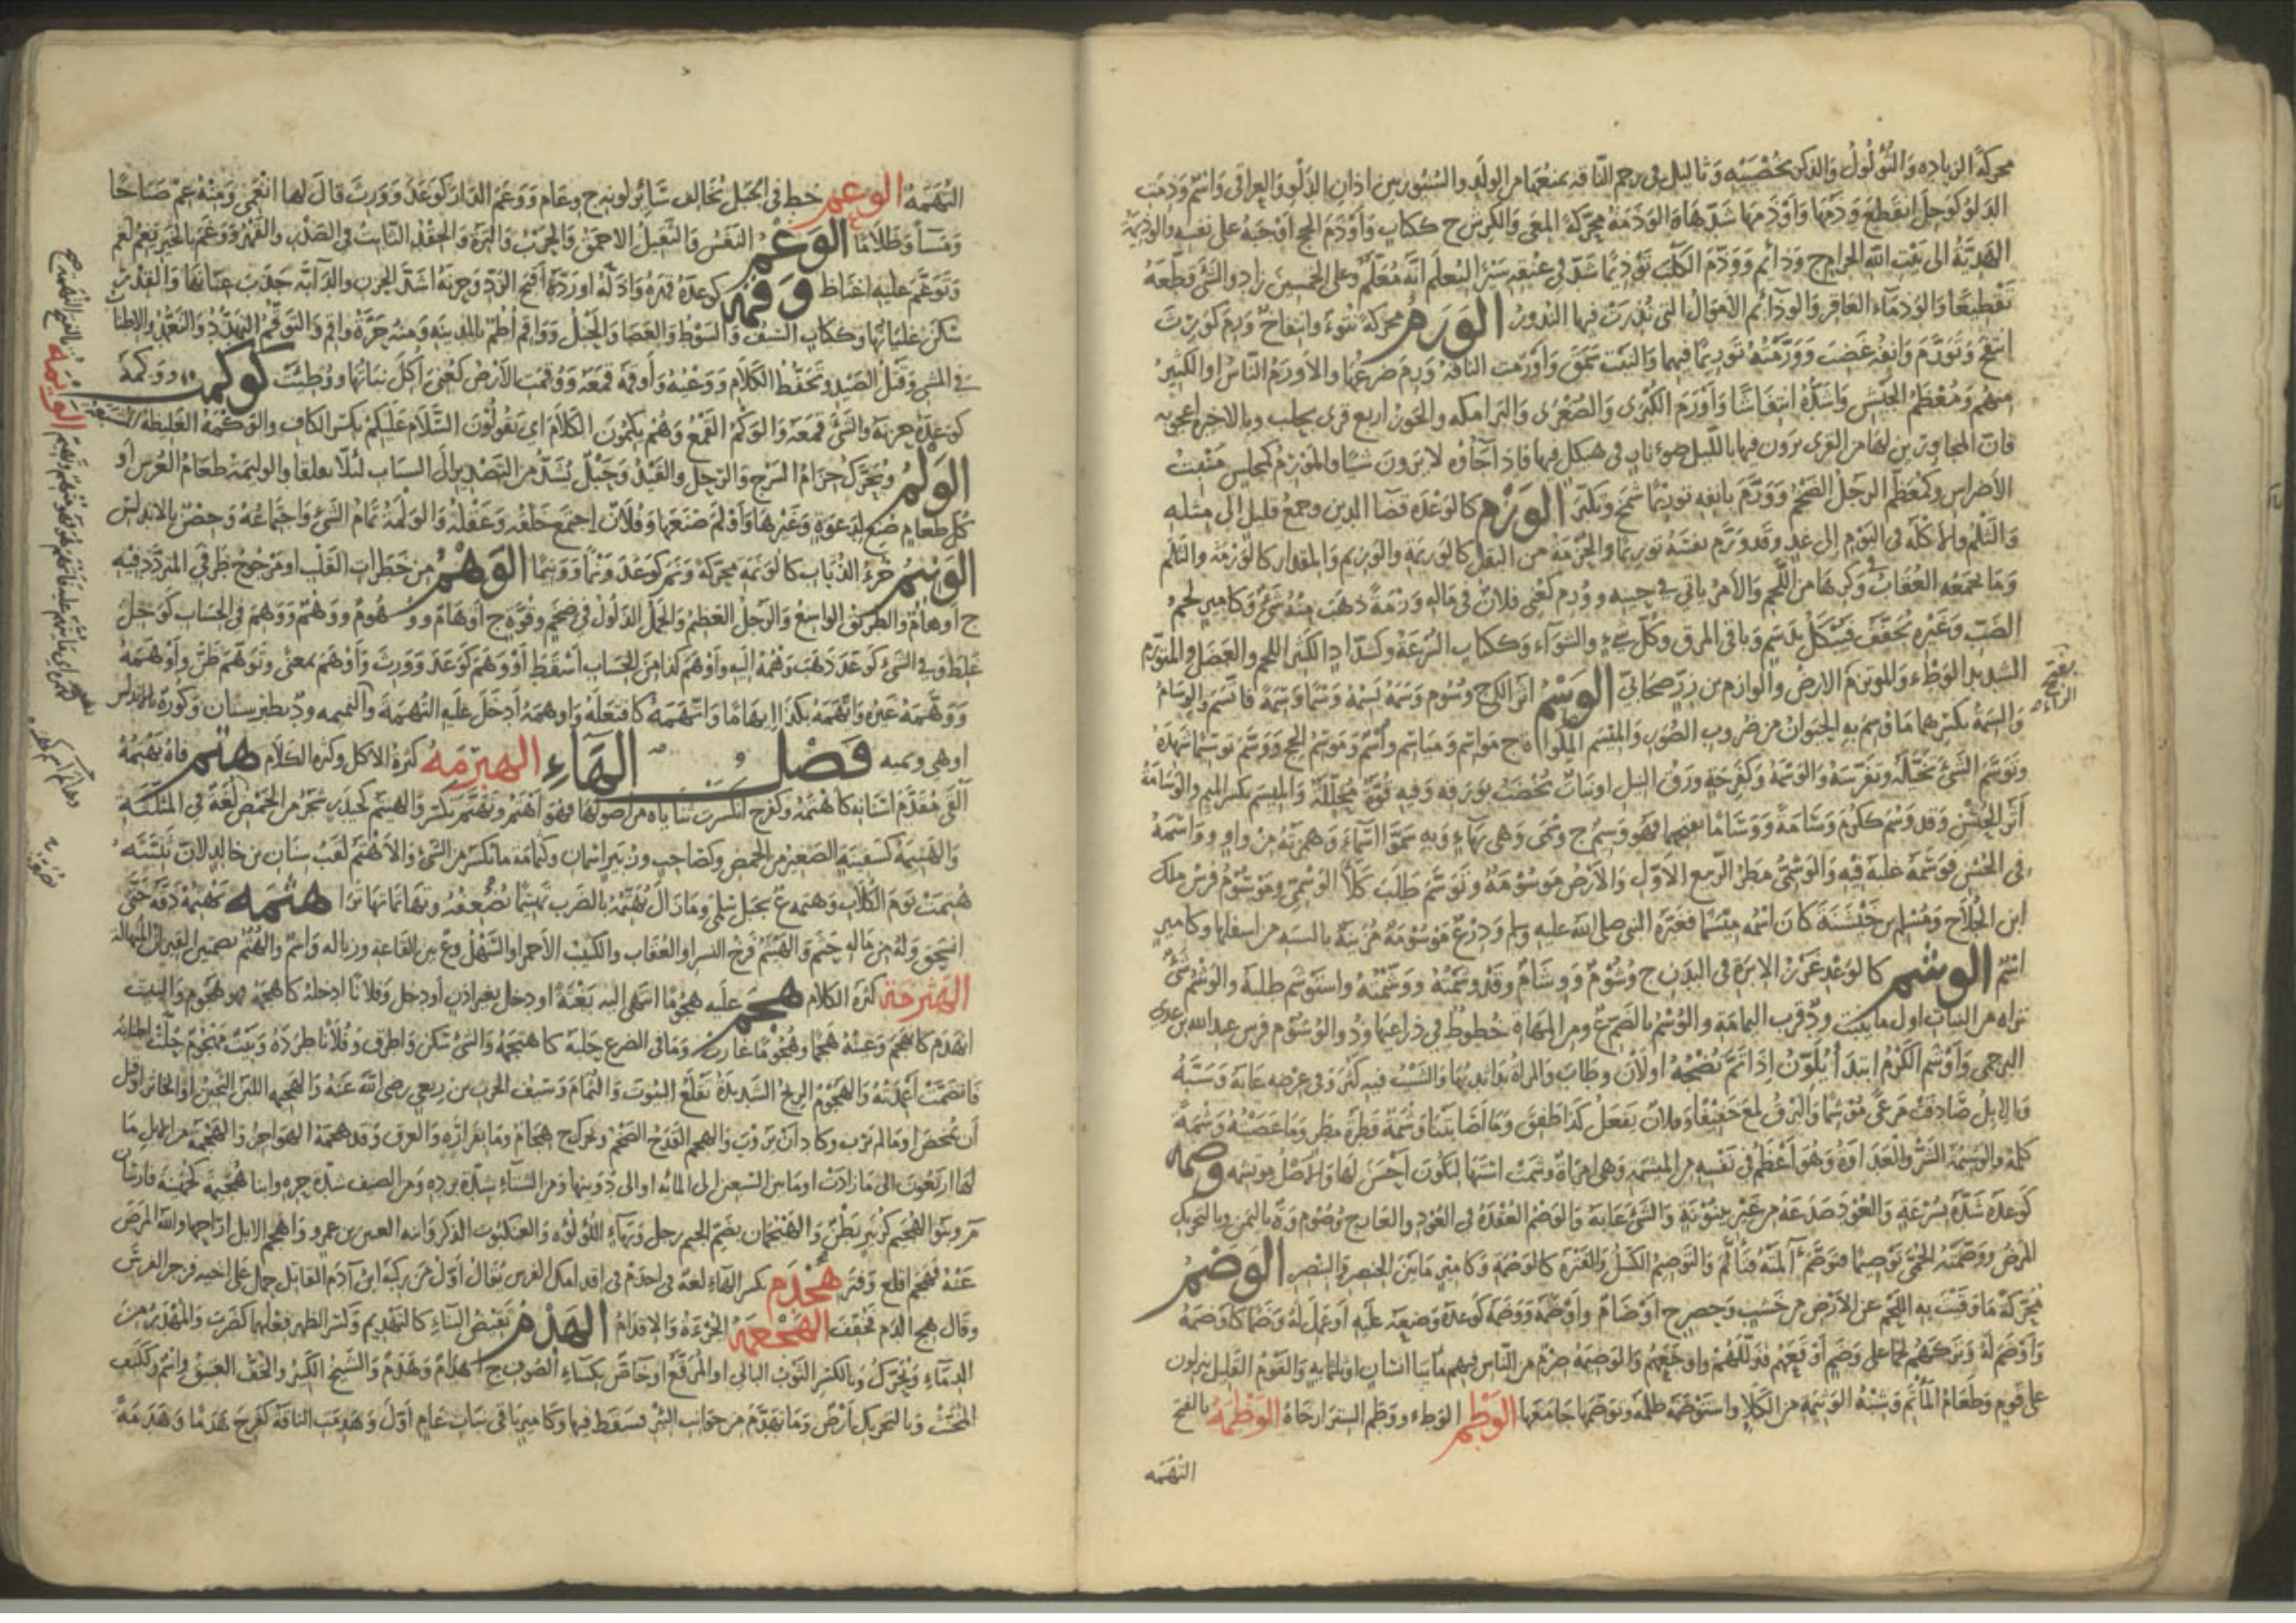 محركة الزيادة والثؤلول والذكر بخصييه وثآليل في رحم الناقة تمنعها من الولد والسيور بين آذان الدلو والعراقي واسم وذمت
الدلو كوجل انقطع وذمها وأوذمها شدها والوذمة محركة المعى والكرش ج ككتاب وأوذم الحج أوجبه على نفسه والوذيمة
الهدية إلى بيت الله الحرام ج وذائم ووذم الكلب توذيما شد في عنقه سيرا ليعلم أنه معلم وعلى الخمسين زاد والشئ قطعه
تقطيعا والوذماء العاقر والوذائم الأموال التي نذرت فيها النذور الورم محركة نتوء وانتفاخ ورم كورث
انتفخ وتورم وأنفه غضب وورمته توريما فيهما والنبت سمق وأورمت الناقة ورم ضرعها والأورم الناس أو الكثير
منهم ومعظم الجيش وأشده انتفاشا وأورم الكبرى والصغرى والبرامكة والجوز أربع قرى بحلب وبالأخيرة أعجوبة
فإن المجاورين لها من القرى يرون فيها بالليل ضوء نار في هيكل فيها فإذا جاؤه لا يرون شيئا والمورم كمجلس منبت
الأضراس وكمعظم الرجل الضخم وورم بأنفه توريما شمخ وتكبر الوزم كالوعد قضاء الدين وجمع قليل إلى مثله
والثلم والأكلة في اليوم إلى غد وقد وزم نفسه توزيما والحزمة من البقل كالوزيمة والوزيم والمقدار كالوزمة والثلم
وما تجمعه العقاب في وكرها من اللحم والأمر يأتي في حينه ووزم كعني فلان في ماله وزمة ذهب منه شئ وكأمير لحم
الضب وغيره يجفف فيبكل بدسم وباقي المرق وكل شيء والشواء وككتاب السرعة وكشداد الكثير اللحم والعضل والمتوزم
الشديد الوطء والموتزم الأرض والوازم بن زر صحابي الوسم أثر الكي ج وسوم وسمه يسمه وسما وسمة فاتسم والوسام
والسمة بكسرهما ما وسم به الحيوان من ضروب الصور والميسم المكواة ج مواسم ومياسم واسم وموسم الحج ووسم توسيما شهده
وتوسم الشئ تخيله وتفرسه والوسمة وكفرحة ورق النيل أو نبات يخضب بورقه وفيه قوة محللة والميسم بكسر الميم والوسامة
أثر الحسن وقد وسم ككرم وسامة ووساما بفتحهما فهو وسيم ج وسمى وهي بهاء وبه سموا أسماء وهمزته من واو وواسمه
في الحسن فوسمه غلبه فيه والوسمي مطر الربيع الأول والأرض موسومة وتوسم طلب كلأ الوسمي وموسوم فرس مالك
ابن الجلاح ومسلم بن خيشنة كان اسمه ميسما فغيره النبي صلى الله عليه وسلم ودرع موسومة مزينة بالشبه من أسفلها وكأمير
اسم الوشم كالوعد غرز الإبرة في البدن ج وشوم ووشام وقد وشمته ووشمته واستوشم طلبه والوشم شئ
تراه من النبات أول ما ينبت ود قرب اليمامة والوشم بالضم ع ومن المهاة خطوط في ذراعيها ود والوشوم فرس عبد الله بن عدي
البرجمي وأوشم الكرم ابتدأ يلون أو تم نضجه أو لان وطاب والمرأة بدأ ثديها والشيب فيه كثر وفي عرضه عابه وسبه
والإبل صادفت مرعى موشما والبرق لمع خفيفا وفلان يفعل كذا طفق وما أصابتنا وشمة قطرة مطر وما عصيته وشمة
كلمة والوشيمة الشر والعداوة وهو أعظم في نفسه من المتشمة وهي امرأة وشمت استها ليكون أحسن لها والأصل موتشمة وصمه
كوعده شده بسرعة والعود صدعه من غير بينونة والشئ عابه والوصم العقدة في العود والعار ج وصوم وة باليمن وبالتحريك
المرض ووصمته الحمى توصيما فتوصم آلمته فتألم والتوصيم الكسل والفترة كالوصمة وكأمير ما بين الخنصر والبنصر الوضم
محركة ما وقيت به اللحم عن الأرض من خشب وحصير ج أوضام وأوضمة ووضمه كوعده وضعه عليه أو عمل له وضما كأوضمه
وأوضم له وتركهم لحما على وضم أوقعهم فذللهم وأوجعهم والوضيمة صرم من الناس فيهم مائتا إنسان أو ثلثمائة والقوم القليل ينزلون
على قوم وطعام المأتم وشبه الوثيمة من الكلإ واستوضمه ظلمه وتوضمها جامعها الوطم الوطء ووطم الستر أرخاه الوظمة بالفتح
التهمة
بفتح
الزاء
التهمة الوعم خط في الجبل يخالف سائر لونه ج وعام ووعم الدار كوعد وورث قال لها انعمي ومنه عم صباحا
ومساء وظلاما الوغم النفس والثقيل الأحمق والحرب والترة والحقد الثابت في الصدر والقهر ووغم بالخبر يغم لغم
وتوغم عليه اغتاظ وقمه كوعده قهره وأذله أو رده أقبح الرد وحزنه أشد الحزن والدابة جذب عنانها والقدر
سكن غليانها وككتاب السيف والسوط والعصا والحبل وواقم أطم بالمدينة ومنه حرة واقم والتوقم التهدد والتعمد والإطناب
في الشئ وقتل الصيد وتحفظ الكلام ووعيه وأوقمه قمعه ووقمت الأرض كعني أكل نباتها ووطئت كوكمت ووكمه
كوعده حزنه والشئ قمعه والوكم القمع وهم يكمون الكلام أي يقولون السلام عليكم بكسر الكاف والوكمة الغليظة المشبعة
الولم ويحرك حزام السرج والرحل والقيد وحبل يشد من التصدير إلى السناف لئلا يقلقا والوليمة طعام العرس أو
كل طعام صنع لدعوة وغيرها وأولم صنعها وفلان اجتمع خلقه وعقله والولمة تمام الشئ واجتماعه وحصن بالأندلس
الونيم خرء الذباب كالونمة محركة ونم كوعد ونما وونيما الوهم من خطرات القلب أو مرجوح طرفي المتردد فيه
ج أوهام والطريق الواسع والرجل العظيم والجمل الذلول في ضخم وقوة ج أوهام ووهوم ووهم ووهم في الحساب كوجل
غلط وفي الشئ كوعد ذهب وهمه إليه وأوهم كذا من الحساب أسقط أو وهم كوعد وورث وأوهم بمعنى وتوهم ظن وأوهمه
ووهمه غيره واتهمه بكذا إيهاما واتهمه كافتعله وأوهمه أدخل عليه التهمة والتميمة ود بطبرستان وكورة بالأندلس
أوهي ونميه فصل الهاء الهبرمة كثرة الأكل وكثرة الكلام هتم فاه يهتمه
ألقى مقدم أسنانه كأهتمه وكفرح انكسرت ثناياه من أصولها فهو أهتم وتهتم تكسر والهيتم كحيدر شجر من الحمض لغة في المثلثة
والهتيمة كسفينة الصغير من الحمض وكصاحب وزبير اسمان وكثمامة ما تكسر من الشئ والأهتم لقب سنان بن خالد لأن ثنيته
هتمت يوم الكلاب وهتمة ع بجبل سلمى وما زال يهتمه بالضرب تهتيما يضعفه وتهاتما تهاترا هثمه يهثمه دقه حتى
انسحق وله من ماله حثم والهيثم فرخ النسر أو العقاب والكثيب الأحمر أو السهل وع بين القاعة وزبالة واسم والهثم بضمتين القيزان المنهالة
الهثرمة كثرة الكلام هجم عليه هجوما انتهى إليه بغتة أو دخل بغير إذن أو دخل وفلانا أدخله كأهجمه فهو هجوم والبيت
انهدم كانهجم وعينه هجما وهجوما غارت وما في الضرع حلبه كاهتجمه والشئ سكن وأطرق وفلانا طرده وبيت مهجوم حلت أطنابه
فانضمت أعمدته والهجوم الريح الشديدة تقلع البيوت والثمام وسيف الحرث بن ربعي رضي الله عنه والهجيمة اللبن الثخين أو الخاثر أو قبل
أن يمخض أو ما لم يرب وكاد أن يروب والهجم القدح الضخم ويحرك ج أهجام وماء لفزارة والعرق وقد هجمته الهواجر والهجمة من الإبل ما
لها أربعون إلى ما زادت أو ما بين السبعين إلى المائة أو إلى دوينها ومن الشتاء شدة برده ومن الصيف شدة حره وابنا هجيمة كجهينة فارسان
م وبنو الهجيم كزبير بطن والهيجمان بضم الجيم رجل وبهاء اللؤلؤة والعنكبوت الذكر وابنة العنبر بن عمرو وأهجم الإبل أراحها والله المرض
عنه فهجم أقلع وفتر هجدم بكسر الهاء لغة في إجدم في إقدامك الفرس يقال أول من ركبه ابن آدم القاتل حمل على أخيه فزجر الفرس
وقال هج الدم فخفف الهجعمة الجرءة والإقدام الهدم نقض البناء كالتهديم وكسر الظهر فعلهما كضرب والمهدر من
الدماء ويحرك وبالكسر الثوب البالي أو المرقع أو خاص بكساء الصوف ج أهدام وهدم والشيخ الكبير والخف العتيق واسم وككتف
المخنث وبالتحريك أرض وما تهدم من جوانب البئر فسقط فيها وكأمير باقي نبات عام أول وهدمت الناقة كفرح هدما وهدمة
الويمة